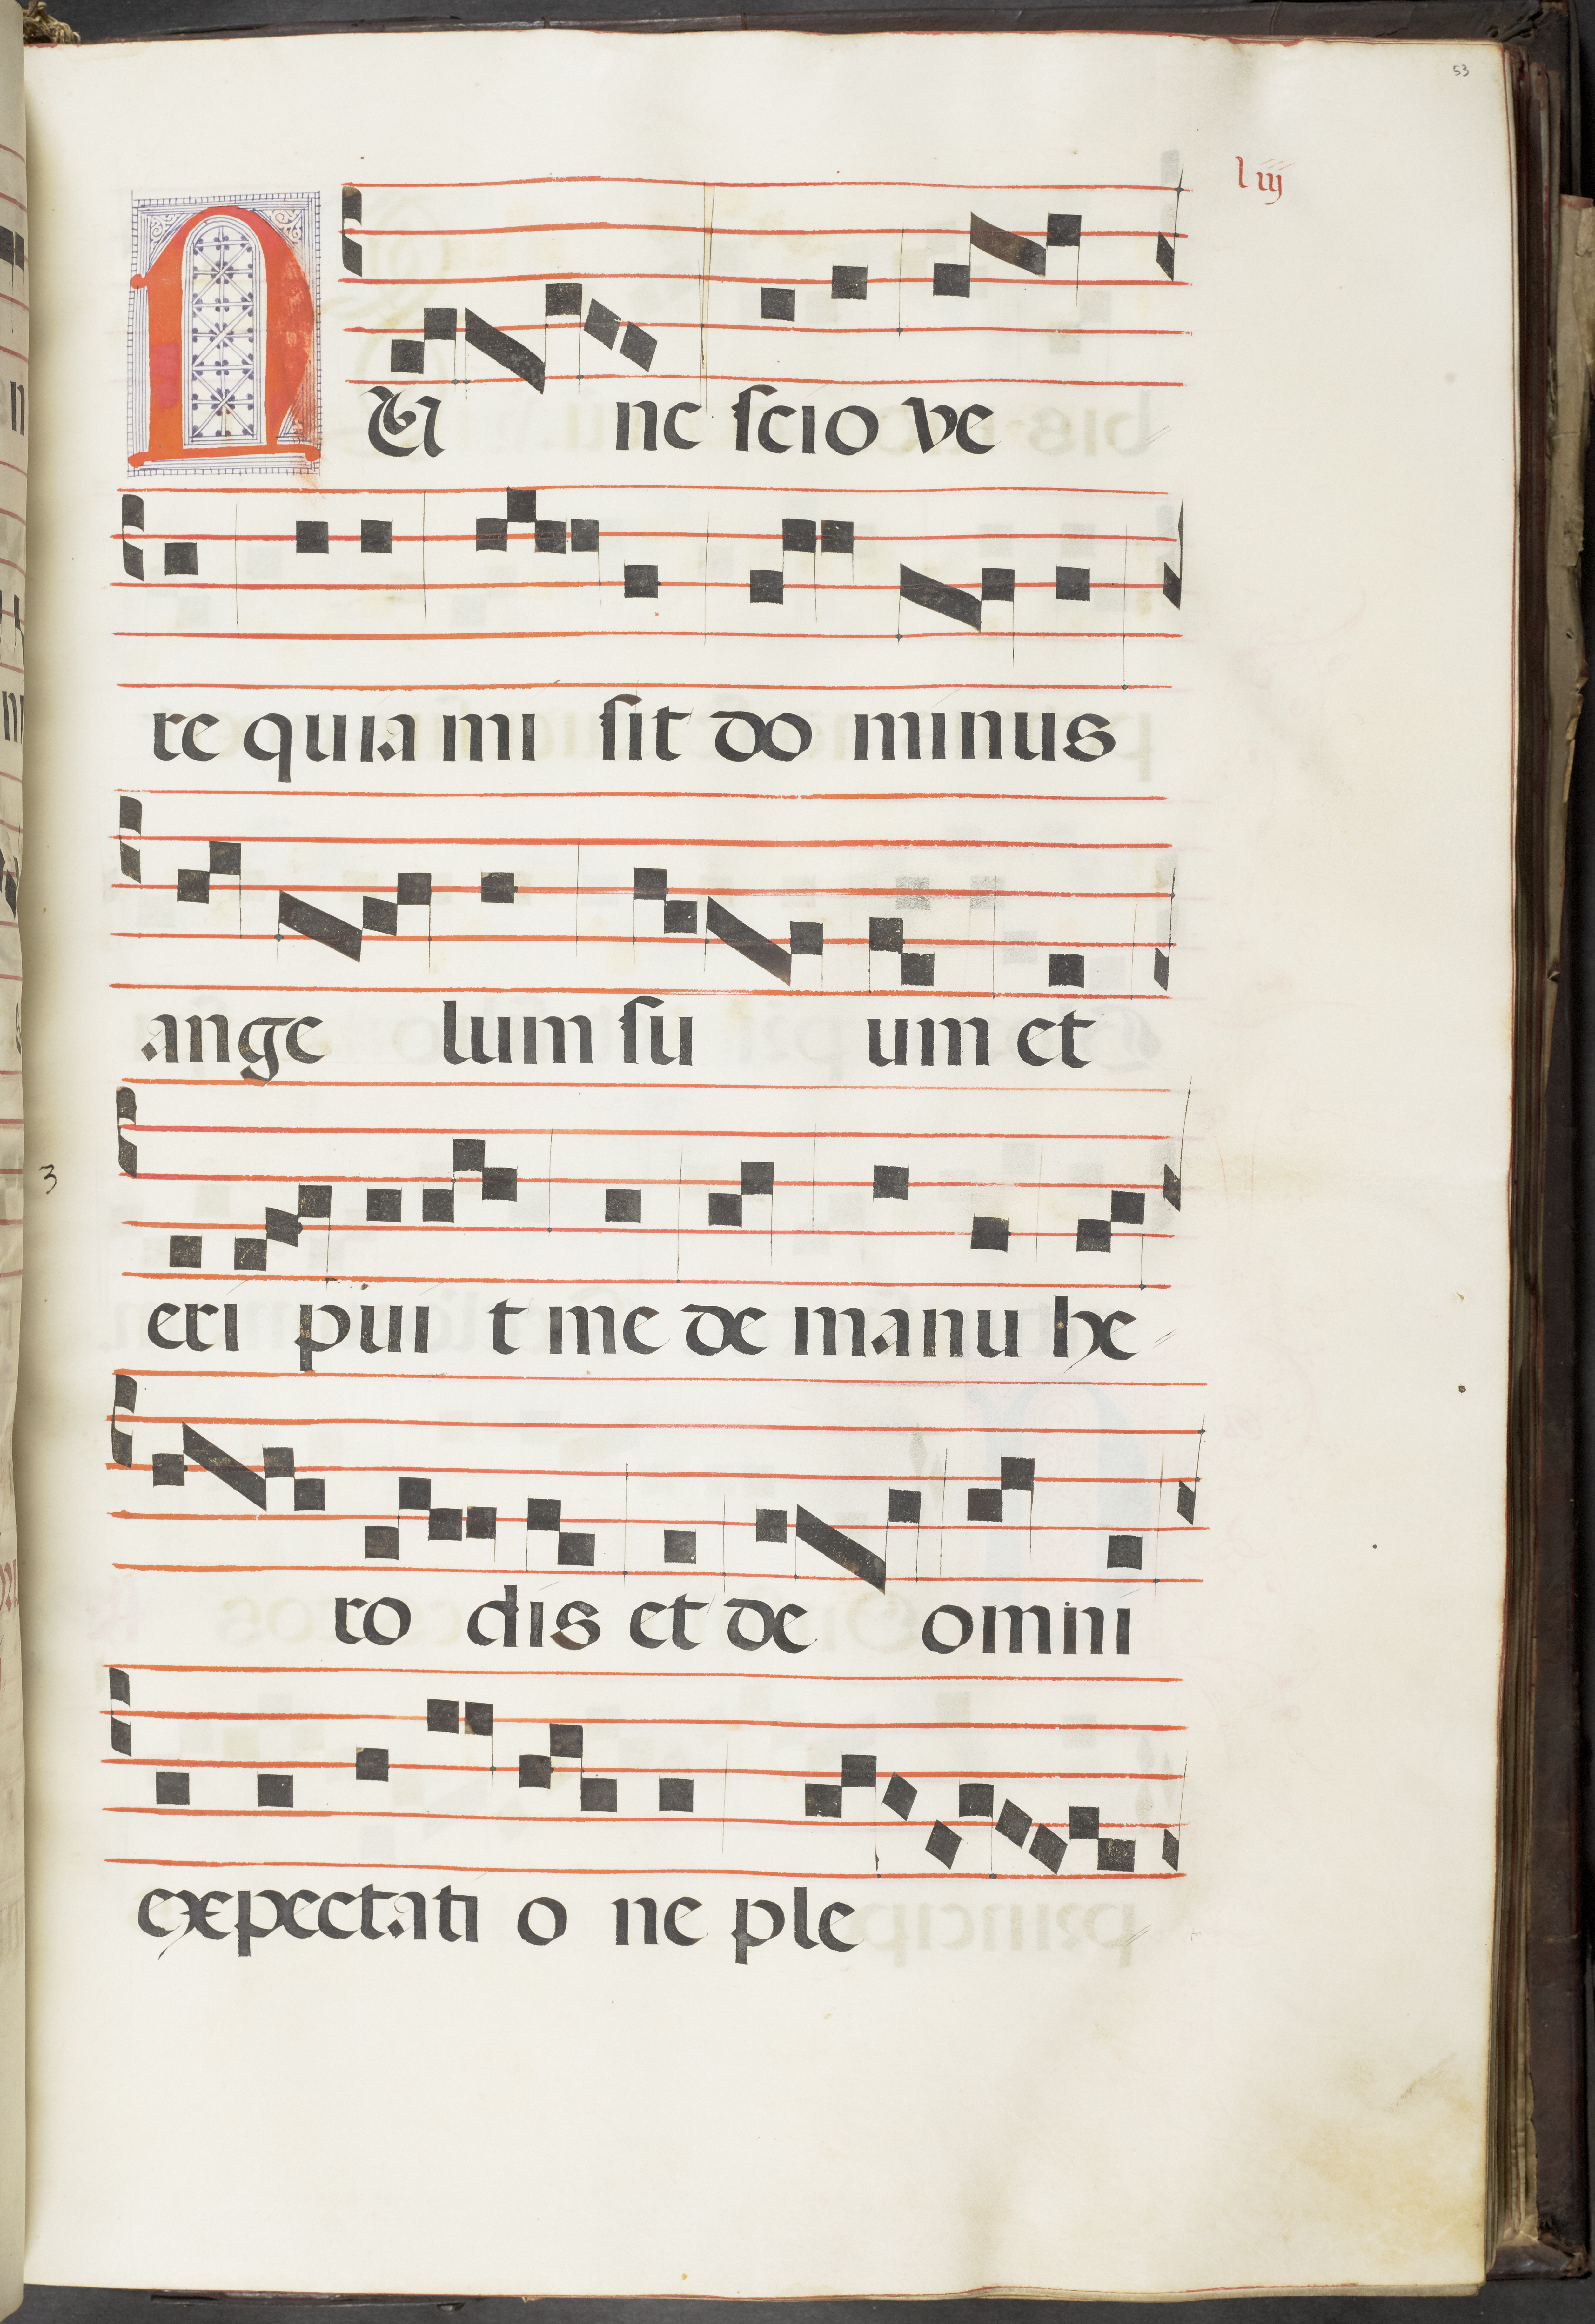 53
liij
NU nc scio ve
re quia mi sit do minus
ange lum su um et
3
eri pui t me de manu he
ro dis et de omni
expectati o ne ple